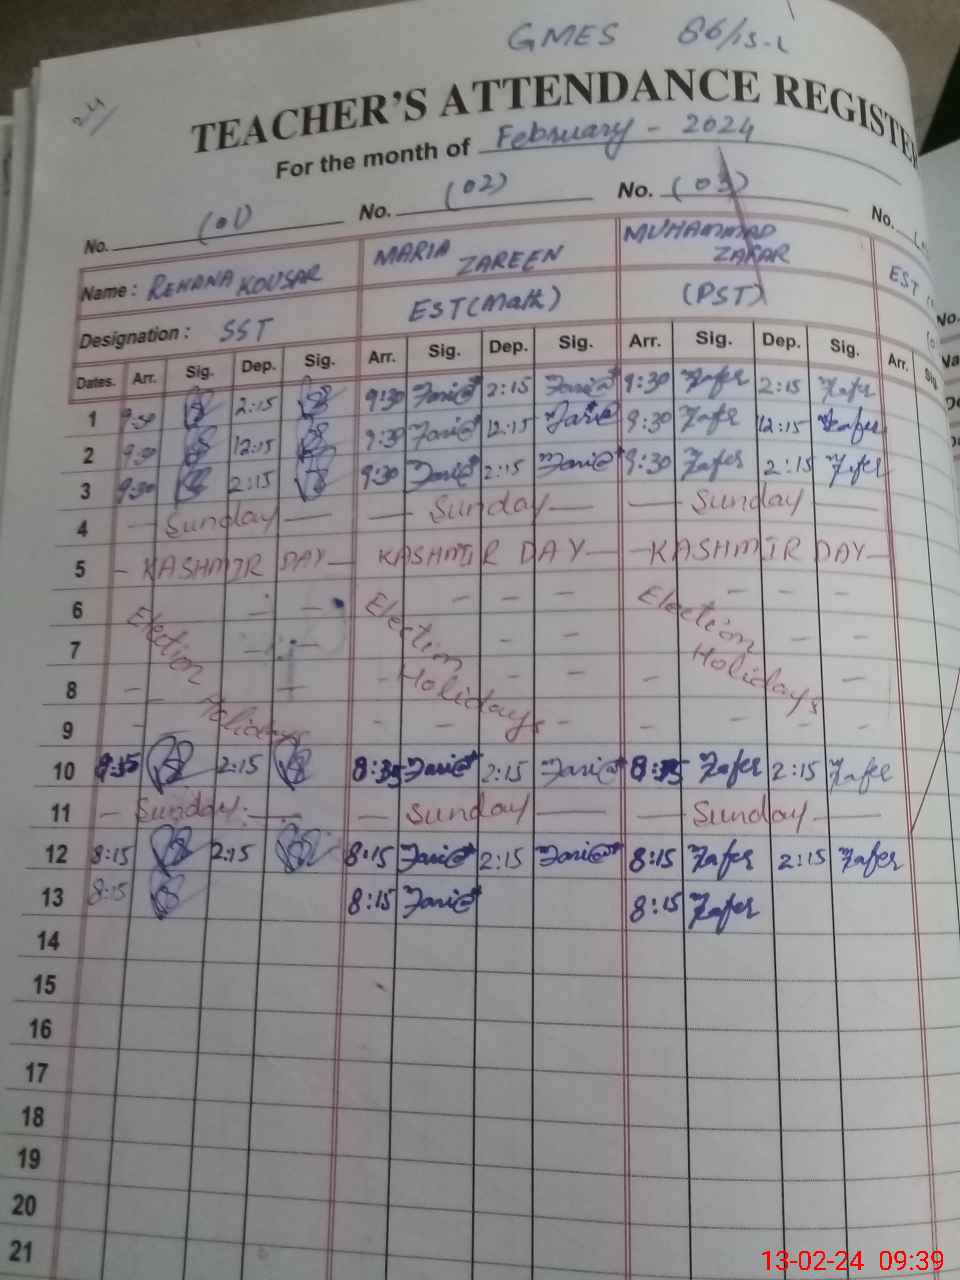 GMES 86/15-L
24
TEACHER'S ATTENDANCE REGISTER
For the month of February - 2024
No. (01) No. (02) No. (03) No.
Name: REHANA KOUSAR MARIA ZAREEN MUHAMMAD ZAFAR EST
Designation: SST EST (Math) (PST)
Dates. Arr. Sig. Dep. Sig. Arr. Sig. Dep. Sig. Arr. Sig. Dep. Sig. Arr. Sig.
1 9:30 2:15 9:30 2:15 9:30 Zafer 2:15 Zafer
2 9:30 12:15 9:30 12:15 9:30 Zafer 12:15 Zafer
3 9:30 2:15 9:30 2:15 9:30 Zafer 2:15 Zafer
4 — Sunday — — Sunday — — Sunday —
5 - KASHMIR DAY - KASHMIR DAY - - KASHMIR DAY -
6 Election Election Election
7
8 Holidays Holidays Holidays
9
10 2:15 8:35 2:15 Zafer 2:15 Zafer
11 — Sunday — — Sunday — — Sunday —
12 8:15 2:15 8:15 2:15 8:15 Zafer 2:15 Zafer
13 8:15 8:15 8:15 Zafer
14
15
16
17
18
19
20
21
13-02-24 09:39